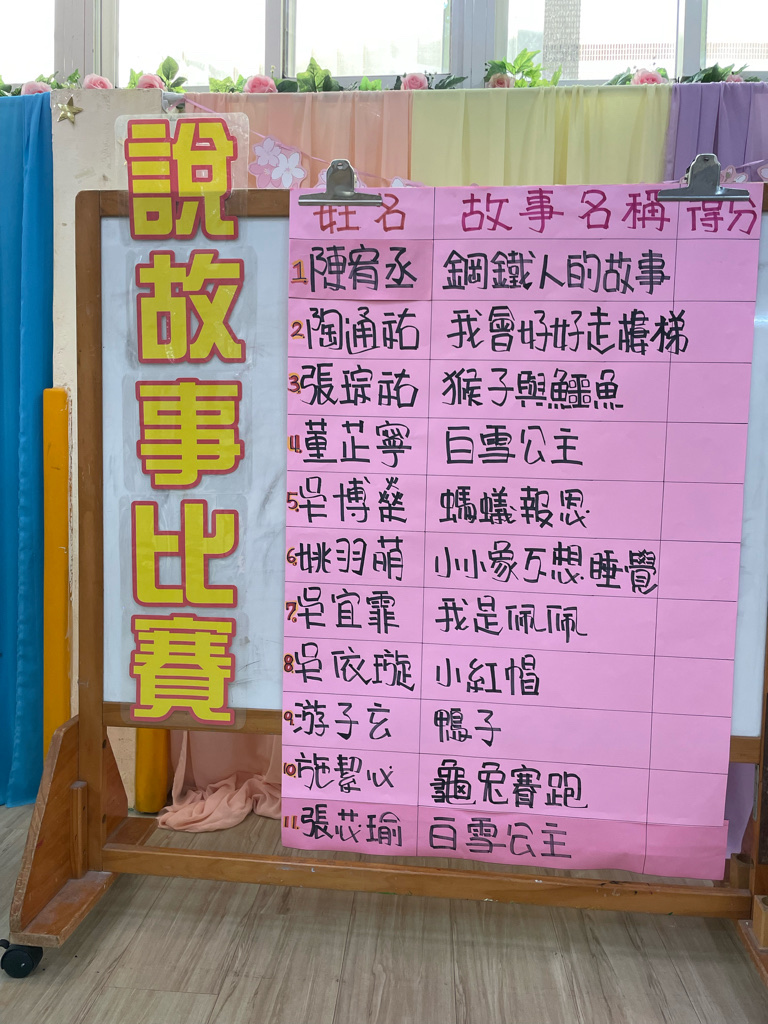 說故事比賽
姓名 故事名稱 得分
1. 陳宥丞 鋼鐵人的故事
2. 陶通祐 我會好好走樓梯
3. 張琮祐 猴子與鱷魚
4. 董芷寧 白雪公主
5. 吳博榮 螞蟻報恩
6. 姚羽萌 小小象不想睡覺
7. 吳宜霏 我是佩佩
8. 吳依璇 小紅帽
9. 游子玄 鴨子
10. 施絜心 龜兔賽跑
11. 張芯瑜 白雪公主